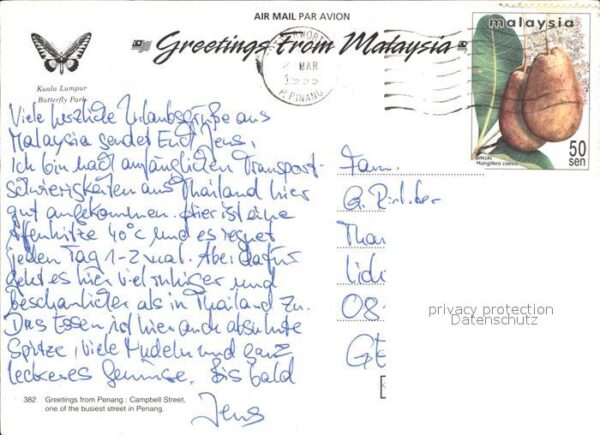 AIR MAIL PAR AVION
Greetings From Malaysia
Kuala Lumpur
Butterfly Park
malaysia
50
sen
BINJAI
Mangifera caesia
MAR
P. PINANG
Viele herzliche Urlaubsgrüße aus
Malaysia sendet Euch Jens.
Ich bin nach anfänglichen Transport-
schwierigkeiten aus Thailand hier
gut angekommen. Hier ist eine
Affenhitze 40°C und es regnet
jeden Tag 1-2 mal. Aber dafür
geht es hier viel ruhiger und
beschaulicher als in Thailand zu.
Das Essen ist hier auch absolute
Spitze, viele Nudeln und ganz
leckeres Gemüse. Bis bald
Jens
Fam.
G.
08
GE
privacy protection
Datenschutz
382 Greetings from Penang : Campbell Street,
one of the busiest street in Penang.